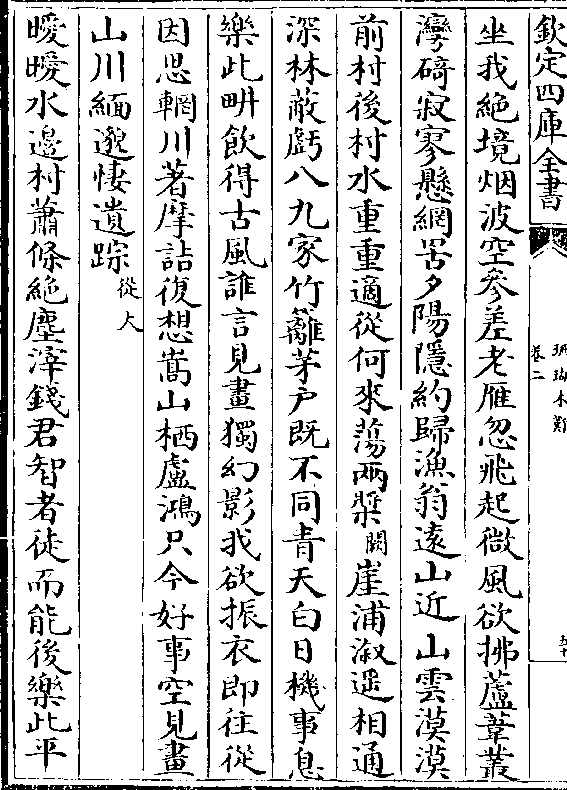 欽定四庫全書
珊瑚木難
卷二
坐我絶境烟波空參差老雁忽飛起微風欲拂蘆葦叢
灣碕寂寥懸網罟夕陽隱約歸漁翁遠山近山雲漠漠
前村後村水重重適從何來蕩兩槳闕崖浦漵遥相通
深林蔽虧八九家竹籬茅户既不同青天白日機事息
樂此畊飲得古風誰言見畫獨幻影我欲振衣即往從
因思輞川著摩詰復想嵩山栖盧鴻只今好事空見畫
山川緬邈悽遺踪從大
曖曖水邉村蕭條絶塵滓錢君智者徒而能後樂此平